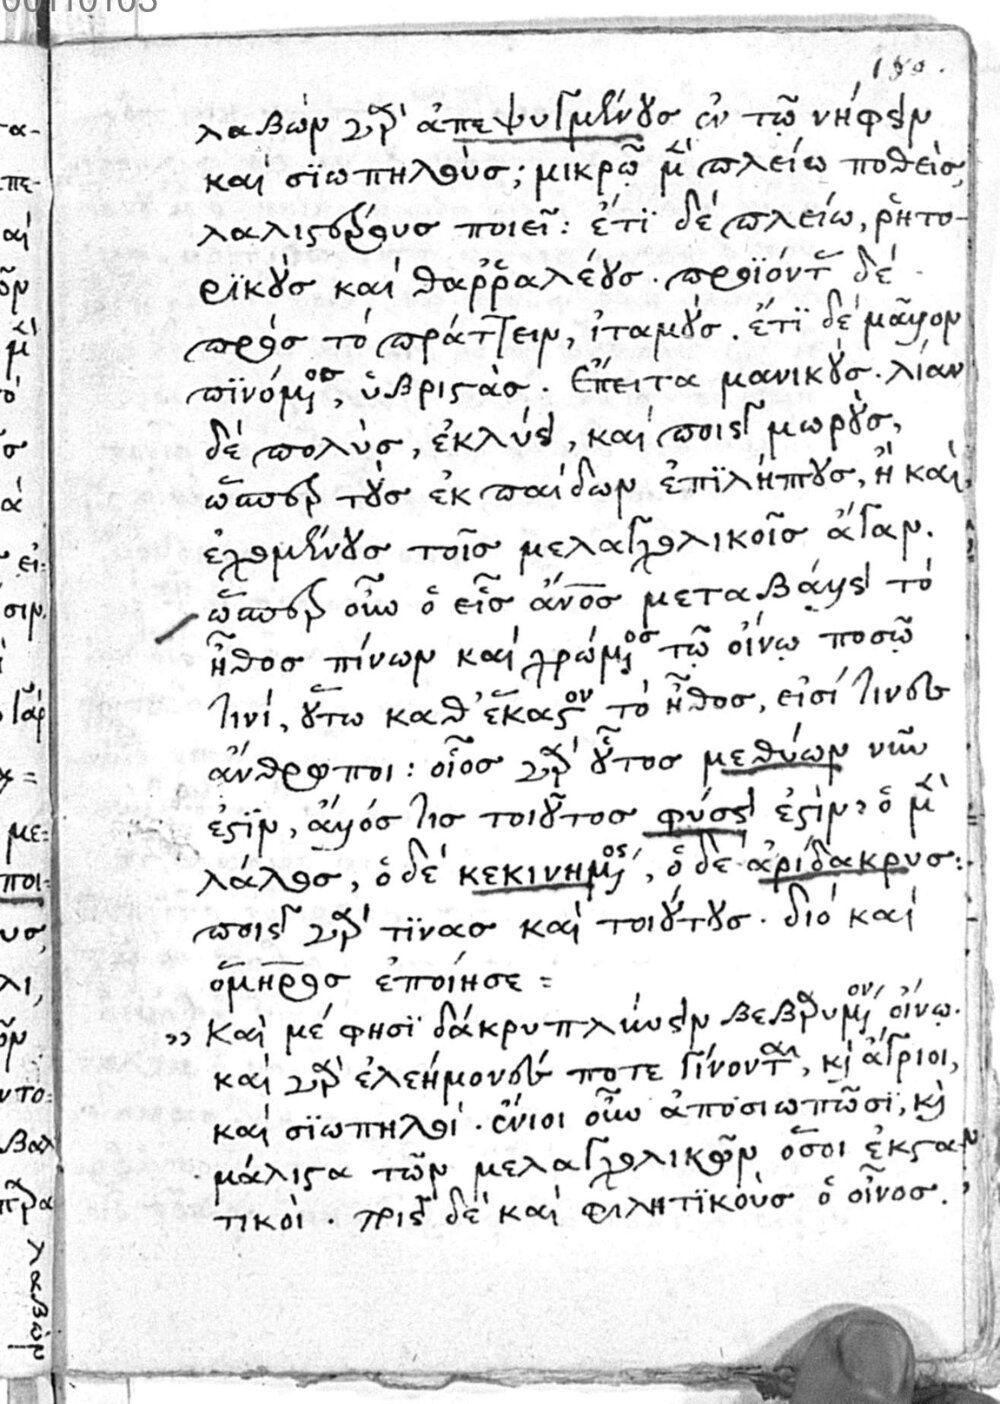 00110103
180.
λαβὼν γὰρ ἀπεψυγμένους ἐν τῷ νήφειν
καὶ σϊωπηλοὺς; μικρῷ μὲν πλείω ποθεὶς,
λαλιστέρους ποιεῖ: ἔτϊ δὲ πλείω, ῥητο-
ρϊκοὺς καὶ θαῤῥαλέους. προϊόντας δὲ
πρὸς τὸ πράττειν, ἰταμοὺς. ἔτϊ δὲ μᾶλλον
πϊνόμενος, ὑβριστὰς. ἔπειτα μανικοὺς. λίαν
δὲ πολὺς, ἐκλύει, καὶ ποιεῖ μωροὺς,
ὥσπερ τοὺς ἐκ παίδων ἐπϊλήπτους, ἢ καὶ
ἐχομένους τοῖς μελαγχολικοῖς ἄγαν.
ὥσπερ οὖν ὁ εἷς ἄνος μεταβάλλει τὸ
ἦθος πίνων καὶ χρώμενος τῷ οἴνῳ ποσῷ
τινὶ, οὕτω καθ' ἕκαστον τὸ ἦθος, εἰσί τινες
ἄνθρωποι: οἷος γὰρ οὗτος μεθύων νῦν
ἐστϊν, ἄλλος τις τοιοῦτος φύσει ἐστὶν· ὁ μὲν
λάλος, ὁ δὲ κεκινημένος, ὁ δὲ ἀρίδακρυς:
ποιεῖ γὰρ τϊνας καὶ τοιούτους. διὸ καὶ
ὅμηρος ἐποίησε =
›› Καὶ μέ φησϊ δάκρυ πλώειν βεβαρυμένον οἴνῳ.
καὶ γὰρ ἐλεήμονές ποτε γίνονται, κὶ ἄγριοι,
καὶ σϊωπηλοί. ἔνιοι οὖν ἀποσιωπῶσϊ, κὶ
μάλιστα τῶν μελαγχολικῶν ὅσοι ἐκστα-
τικοὶ. ποιεῖ δὲ καὶ φιλητϊκοὺς ὁ οἶνος.
λαβὼν